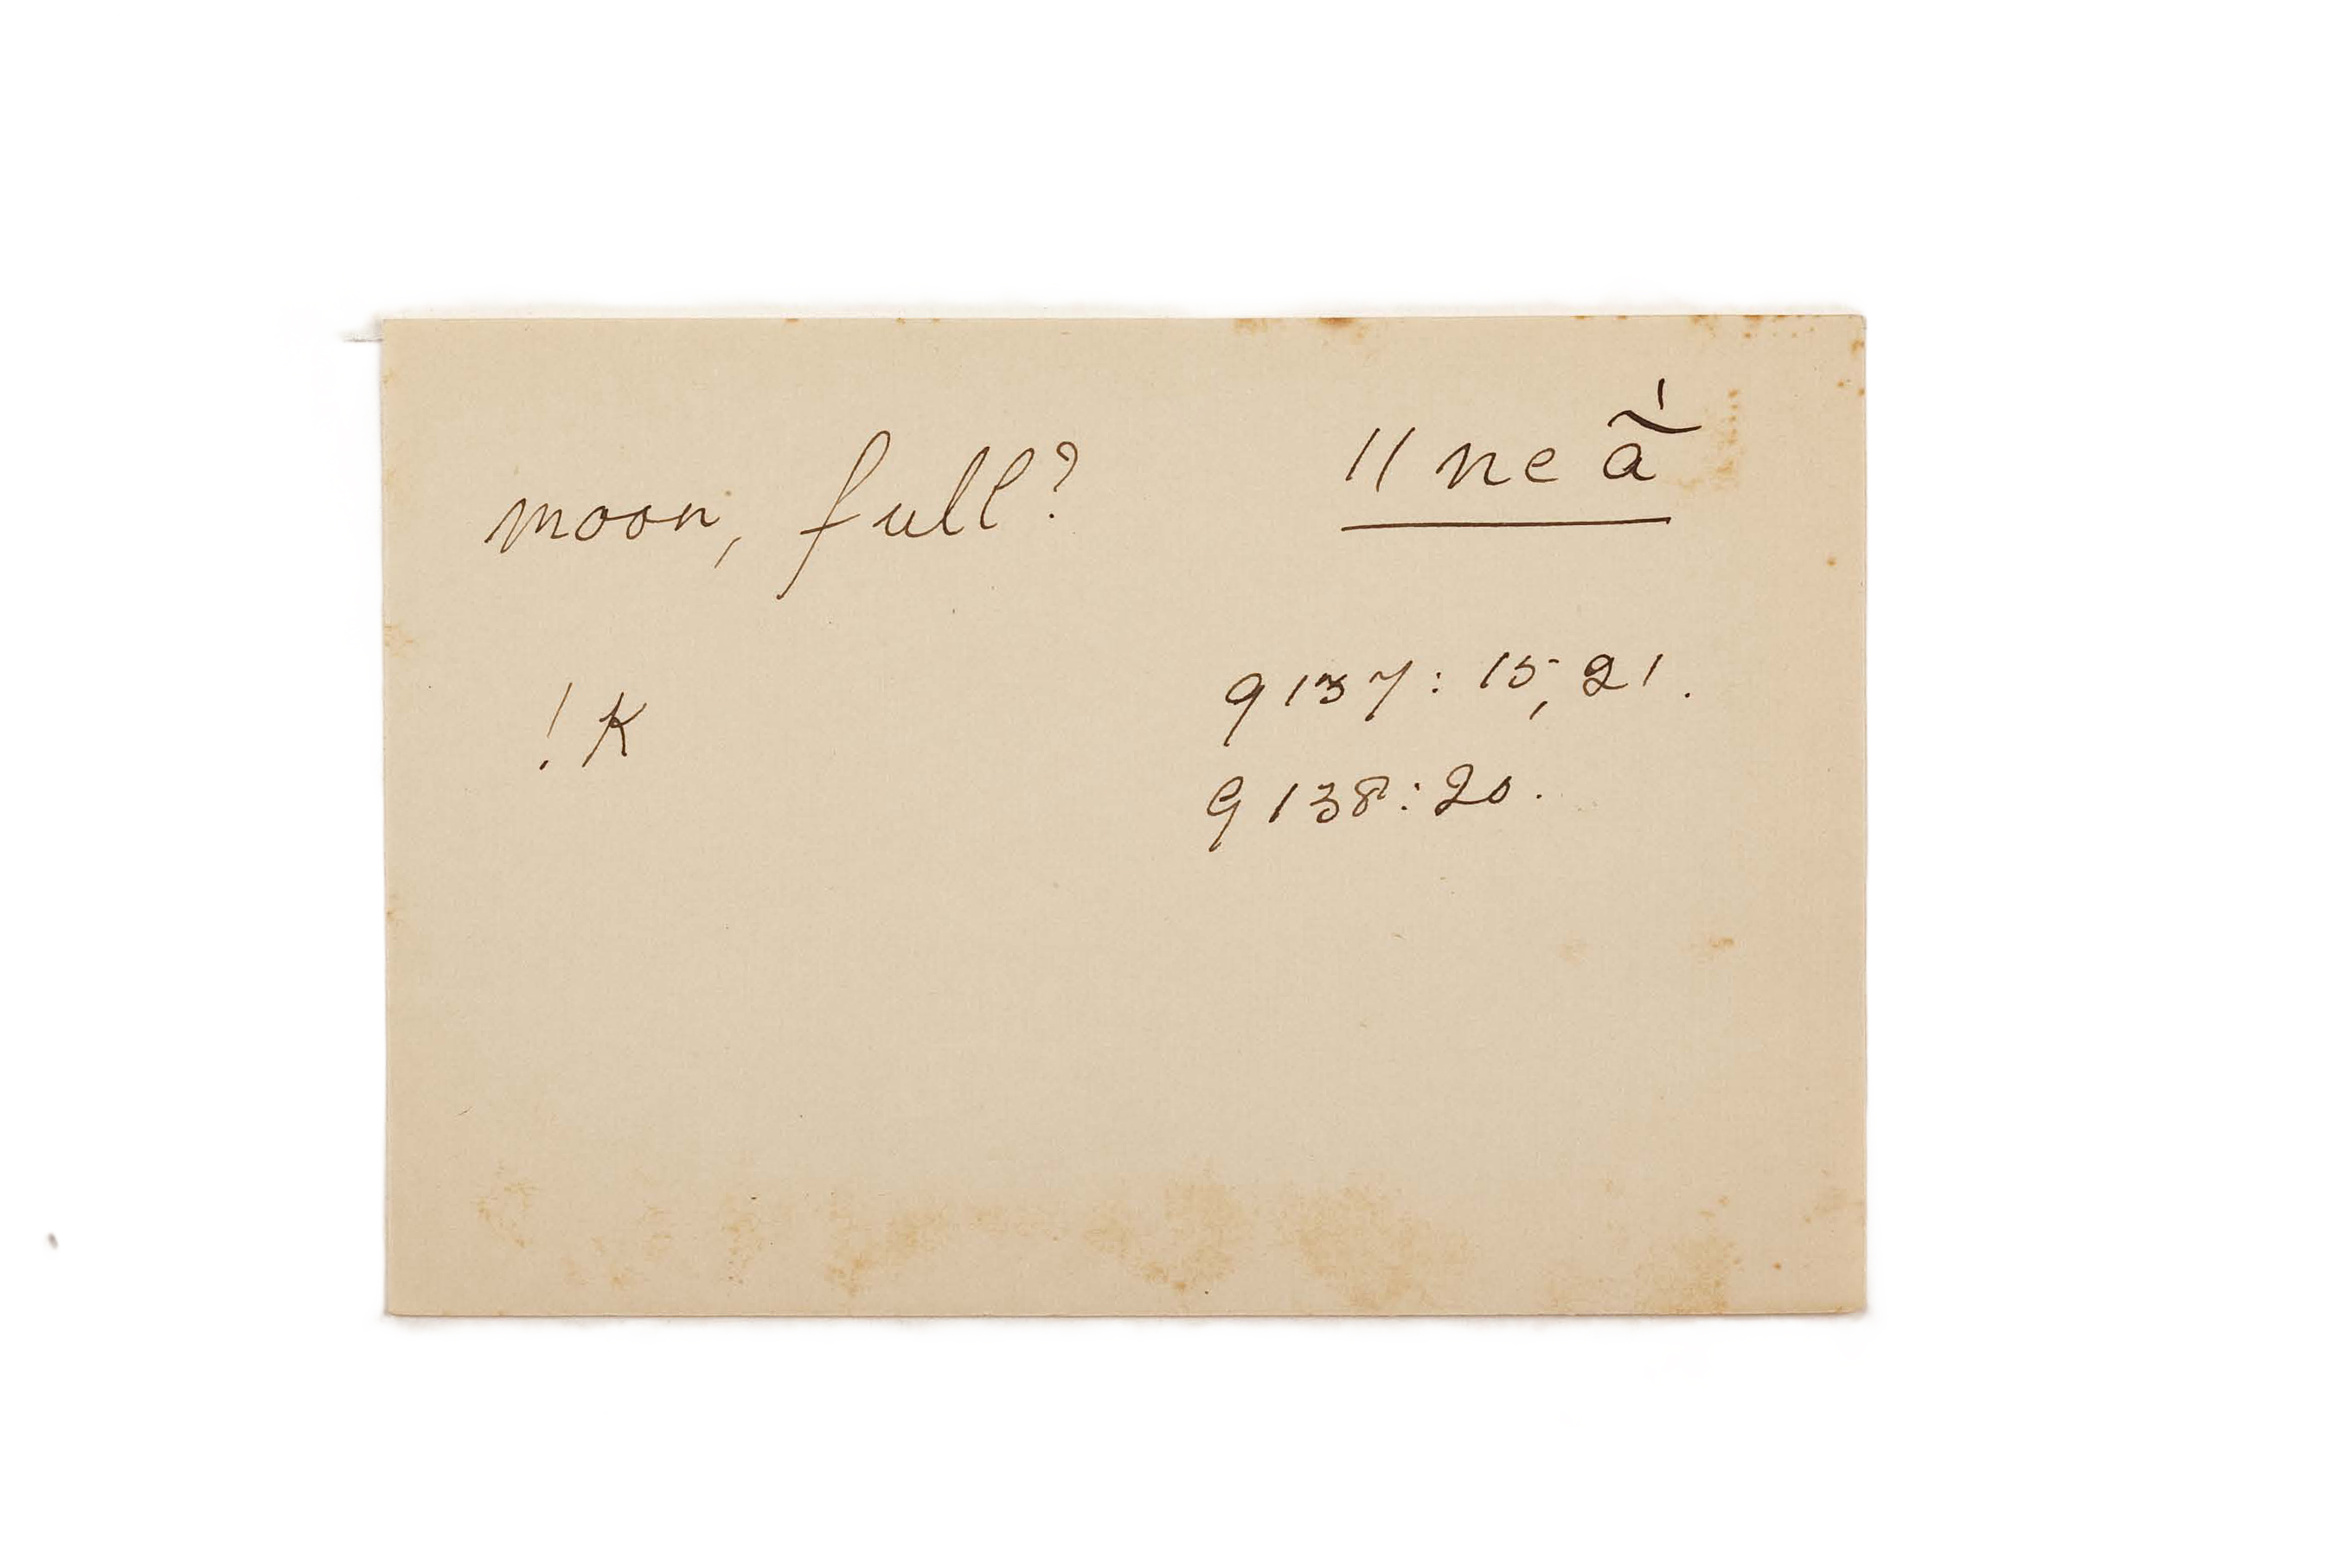 moon, full? ǁne ã́
!K 9137: 15, 21.
9138: 20.